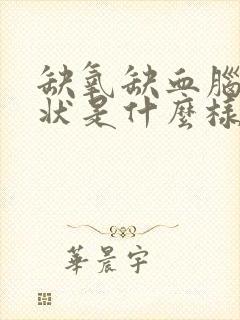 缺氧缺血腦
狀是什麼樣
華晨宇